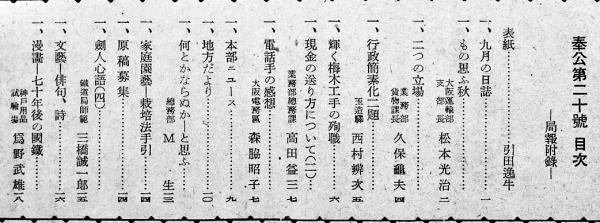 奉公第二十號 目次
―局報附錄―
表紙………引田逸牛
一、九月の日誌………一
一、もの思ふ秋………大阪運輸部 支部長 松本光治 二
一、二つの立場………業務部 貨物課長 久保龜夫 四
一、行政簡素化二題………玉造驛 西村辨次 五
一、輝く梅木工手の殉職………六
一、現金の送り方について(二)………業務部總務課 高田益三 七
一、電話手の感想………大阪電務區 森脇昭子 七
一、本部ニュース………九
一、地方だより………一〇
一、何とかならぬか―と思ふ………總務部 M生 三
一、家庭園藝―栽培法手引………一四
一、原稿募集………一四
一、劍人心語(四)………鐵道局師範 三橋誠一郎 五
一、文藝―俳句、詩………一六
一、漫畫―七十年後の國鐵………神戸用品試驗場 爲野武雄 一八